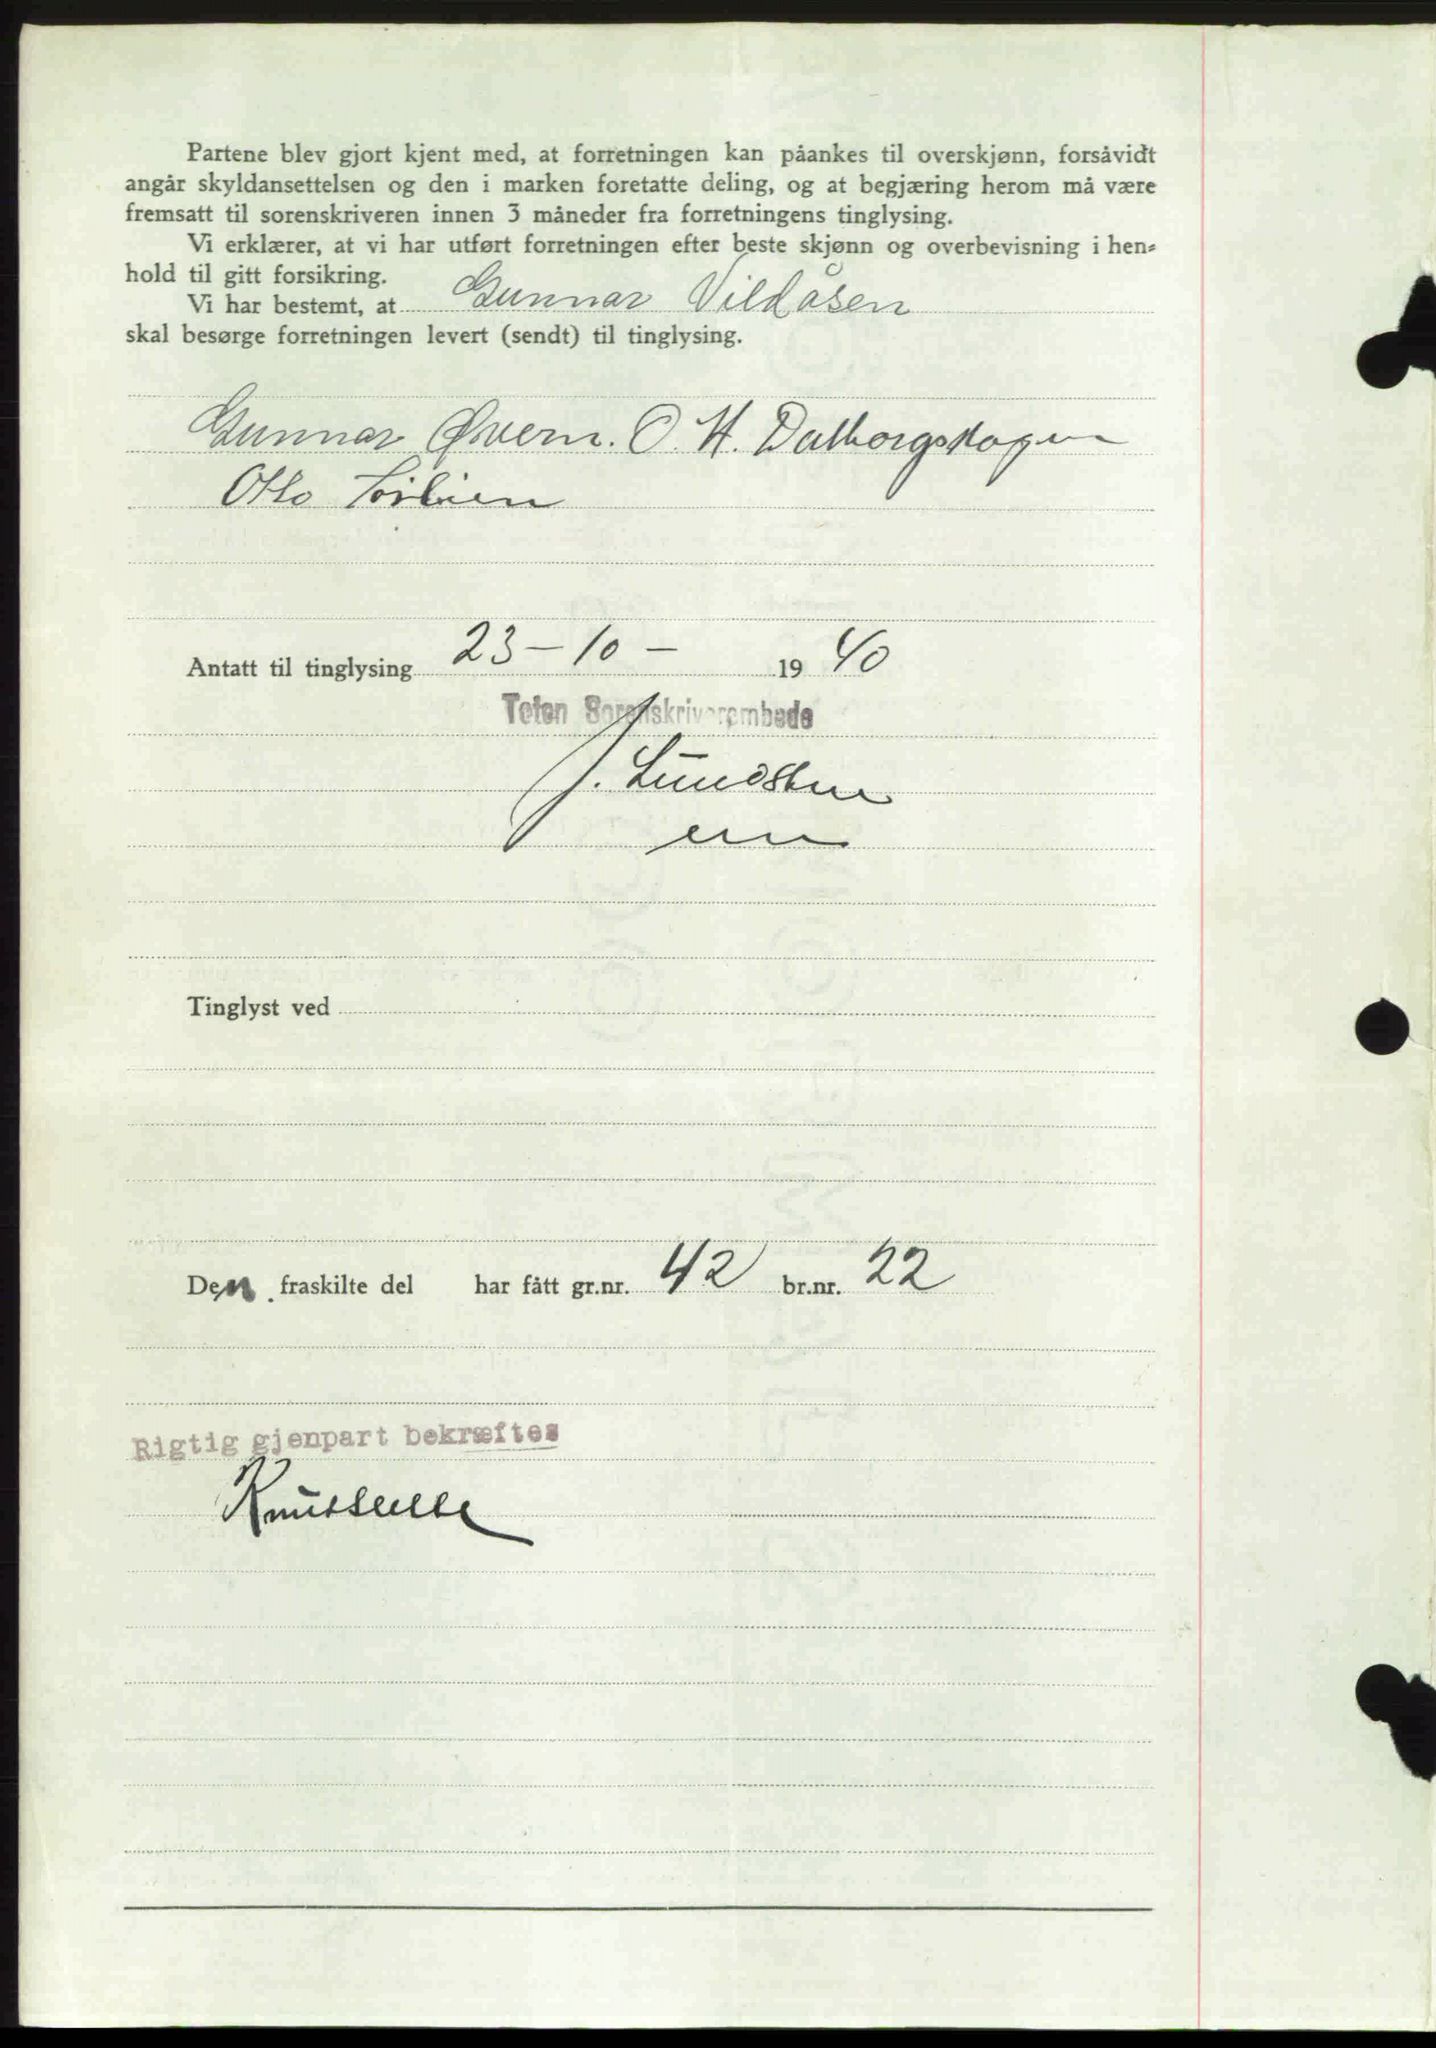 Partene blev gjort kjent med, at forretningen kan påankes til overskjønn, forsåvidt
angår skyldansettelsen og den i marken foretatte deling, og at begjæring herom må være
fremsatt til sorenskriveren innen 3 måneder fra forretningens tinglysing.
Vi erklærer, at vi har utført forretningen efter beste skjønn og overbevisning i hen-
hold til gitt forsikring.
Vi har bestemt, at Gunnar Vildåsen
skal besørge forretningen levert (sendt) til tinglysing.
Gunnar Øvern. O. H. Dalborgskogen
Otto
Antatt til tinglysing 23-10- 1940
Toten Sorenskriverembede
J. Lundsten
Tinglyst ved
Den fraskilte del har fått gr.nr. 42 br.nr. 22
Rigtig gjenpart bekræftes